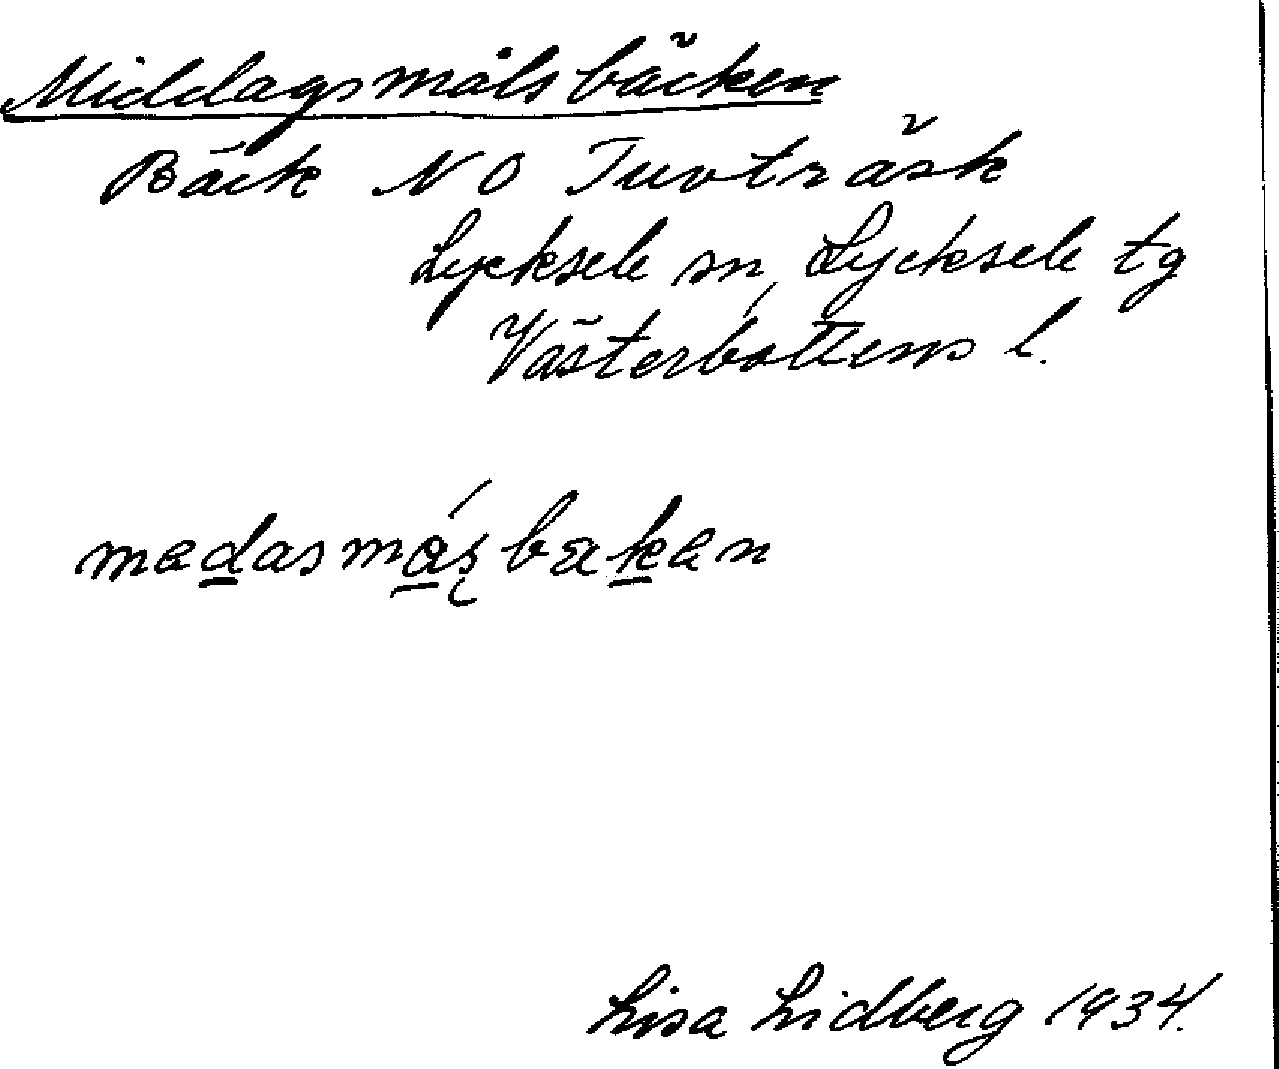 Middagsmålsbäcken
Bäck NO Tuvträsk
Lycksele sn, Lycksele tg
Västerbottens l.
medasmás̨bæken
Lisa Lidberg 1934.